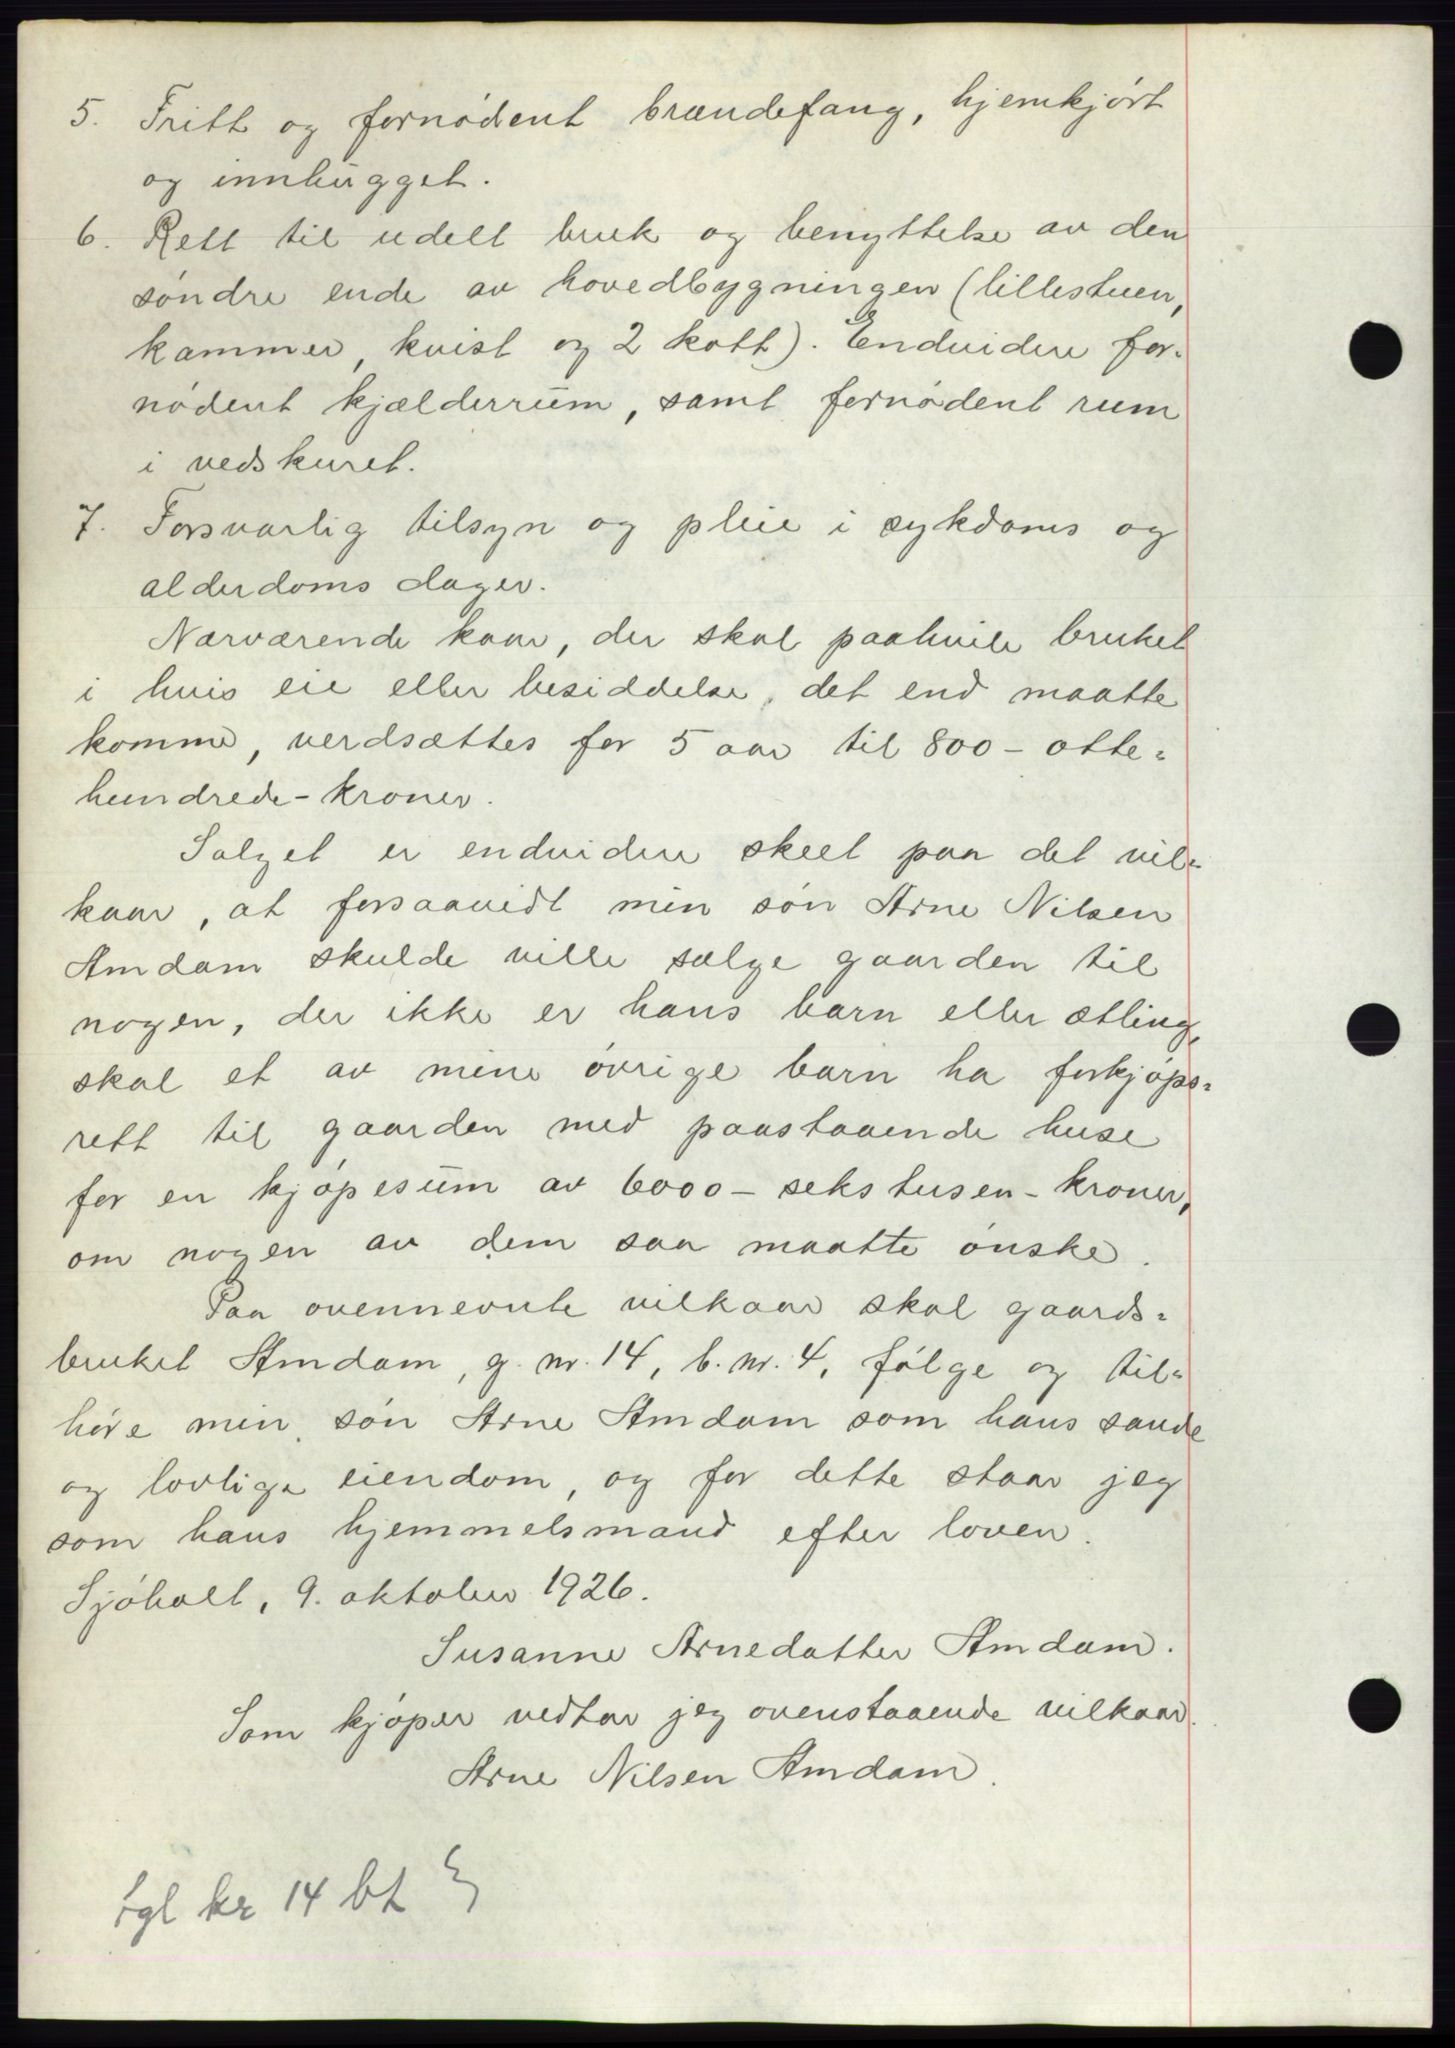 5. Fritt og fornødent brændefang, hjemkjørt
og innhugget.
6. Rett til udelt bruk og benyttelse av den
søndre ende av hovedbygningen (lillestuen,
kammer, kvist og 2 kott). Endvidere for-
nødent kjælderrum, samt fornødent rum
i vedskuret.
7. Forsvarlig tilsyn og pleie i sykdoms og
alderdoms dager.
Nærværende kaar, der skal paahvile bruket
i hvis eie eller besiddelse, det end maatte
komme, verdsættes for 5 aar til 800 - otte-
hundrede - kroner.
Salget er endvidere skeet paa det vil-
kaar, at forsaavidt min søn Arne Nilsen
Amdam skulde ville sælge gaarden til
nogen, der ikke er hans barn eller ætling,
skal et av mine øvrige barn ha forkjøps-
rett til gaarden med paastaaende huse
for en kjøpesum av 6000 - sekstusen - kroner,
om nogen av dem saa maatte ønske.
Paa ovennevnte vilkaar skal gaards-
bruket Amdam, g. nr. 14, b. nr. 4, følge og til-
høre min søn Arne Amdam som hans sande
og lovlige eiendom, og for dette staar jeg
som hans hjemmelsmand efter loven.
Sjøholt, 9. oktober 1926.
Susanne Arnedatter Amdam.
Som kjøper vedtar jeg ovenstaaende vilkaar.
Arne Nilsen Amdam.
tgl kr 14 bt